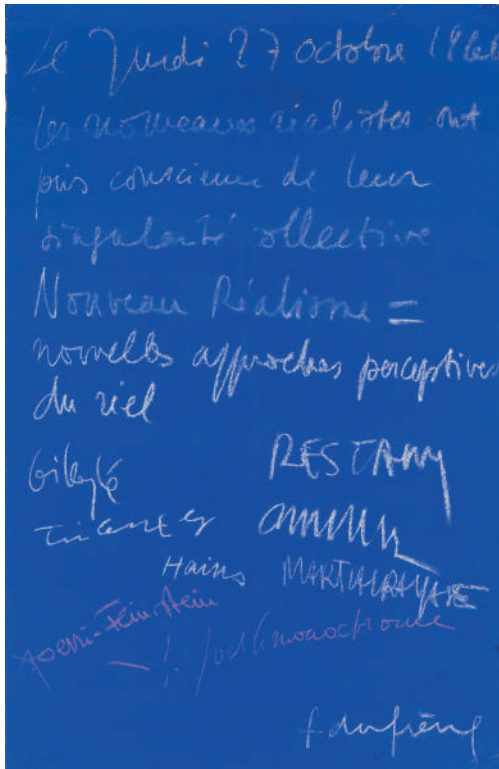 Le Jeudi 27 octobre 1960
les nouveaux réalistes ont
pris conscience de leur
singularité collective
Nouveau Réalisme =
nouvelles approches perceptives
du réel
RESTANY
Tinguely
Hains MARTIALRAYSSE
Spoerri-Feinstein
Y. Yves le monochrome
f dufrêne